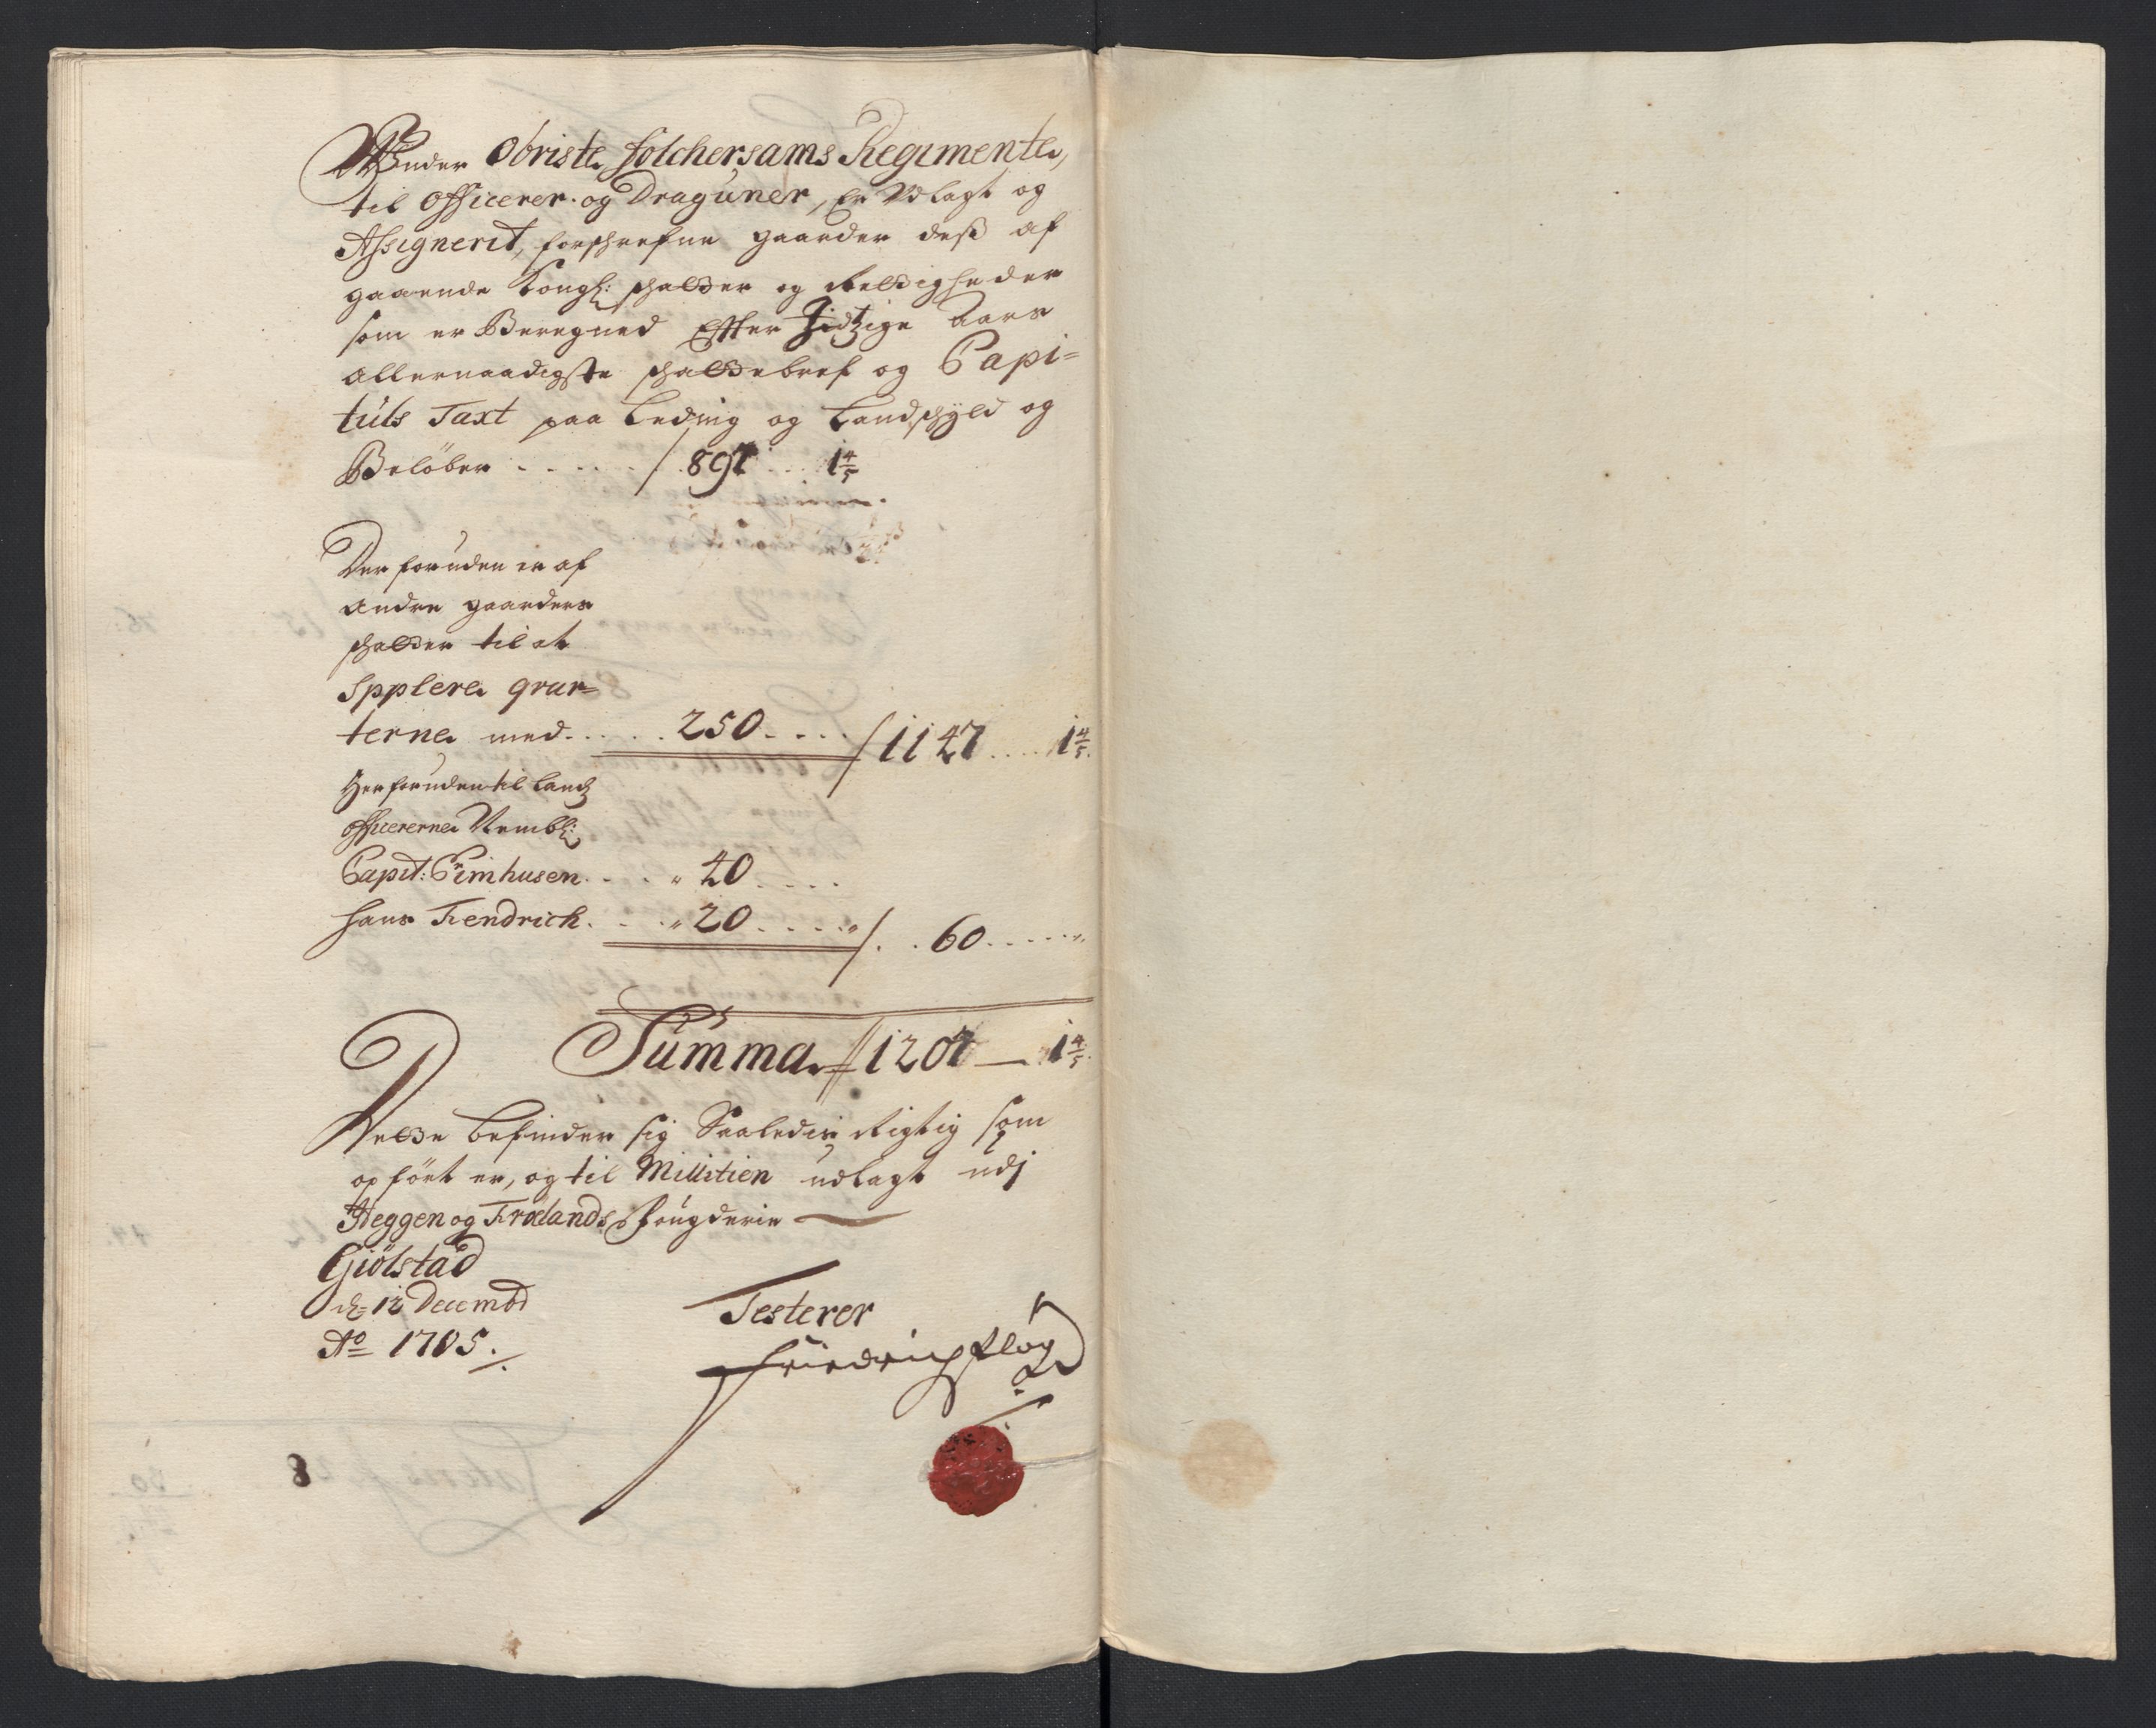 Under Obriste Folchersams Regimente,
til Officerer og Draguner, Er Udlagt og
Assignerit, forschrefne gaarder dess af
gaaende Kongl: schatter og Rettigheder
som er Beregned Effter Itzige Aars
allernaadigste schattebref og Capi=
tuls Taxt paa Leding og Landschyld og
Beløber . . . . . / 897 . . . 1 4/5
Der foruden er af
andre gaarders
schatter til at
Spplere qvar=
terne med . . . . . 250 . . . . / 1147 . . . . 1 4/5.
Herforuden til Landz
officererne Nembl:
Capit: Crimhusen . . . " 40 . . . .
hans Fendrich . . . " 20 . . . . " / . . 60 . . . . . "
Summa // 1207 — 1 4/5.
Dette befinder sig Saaledis Rigtig som
opført er, og til Millitien udlagt udj
Heggen og Frølands fougderie —
Giølstad
d: 12 Decembr
Ao 1705.
Testerer
Friedrich Pflog
8